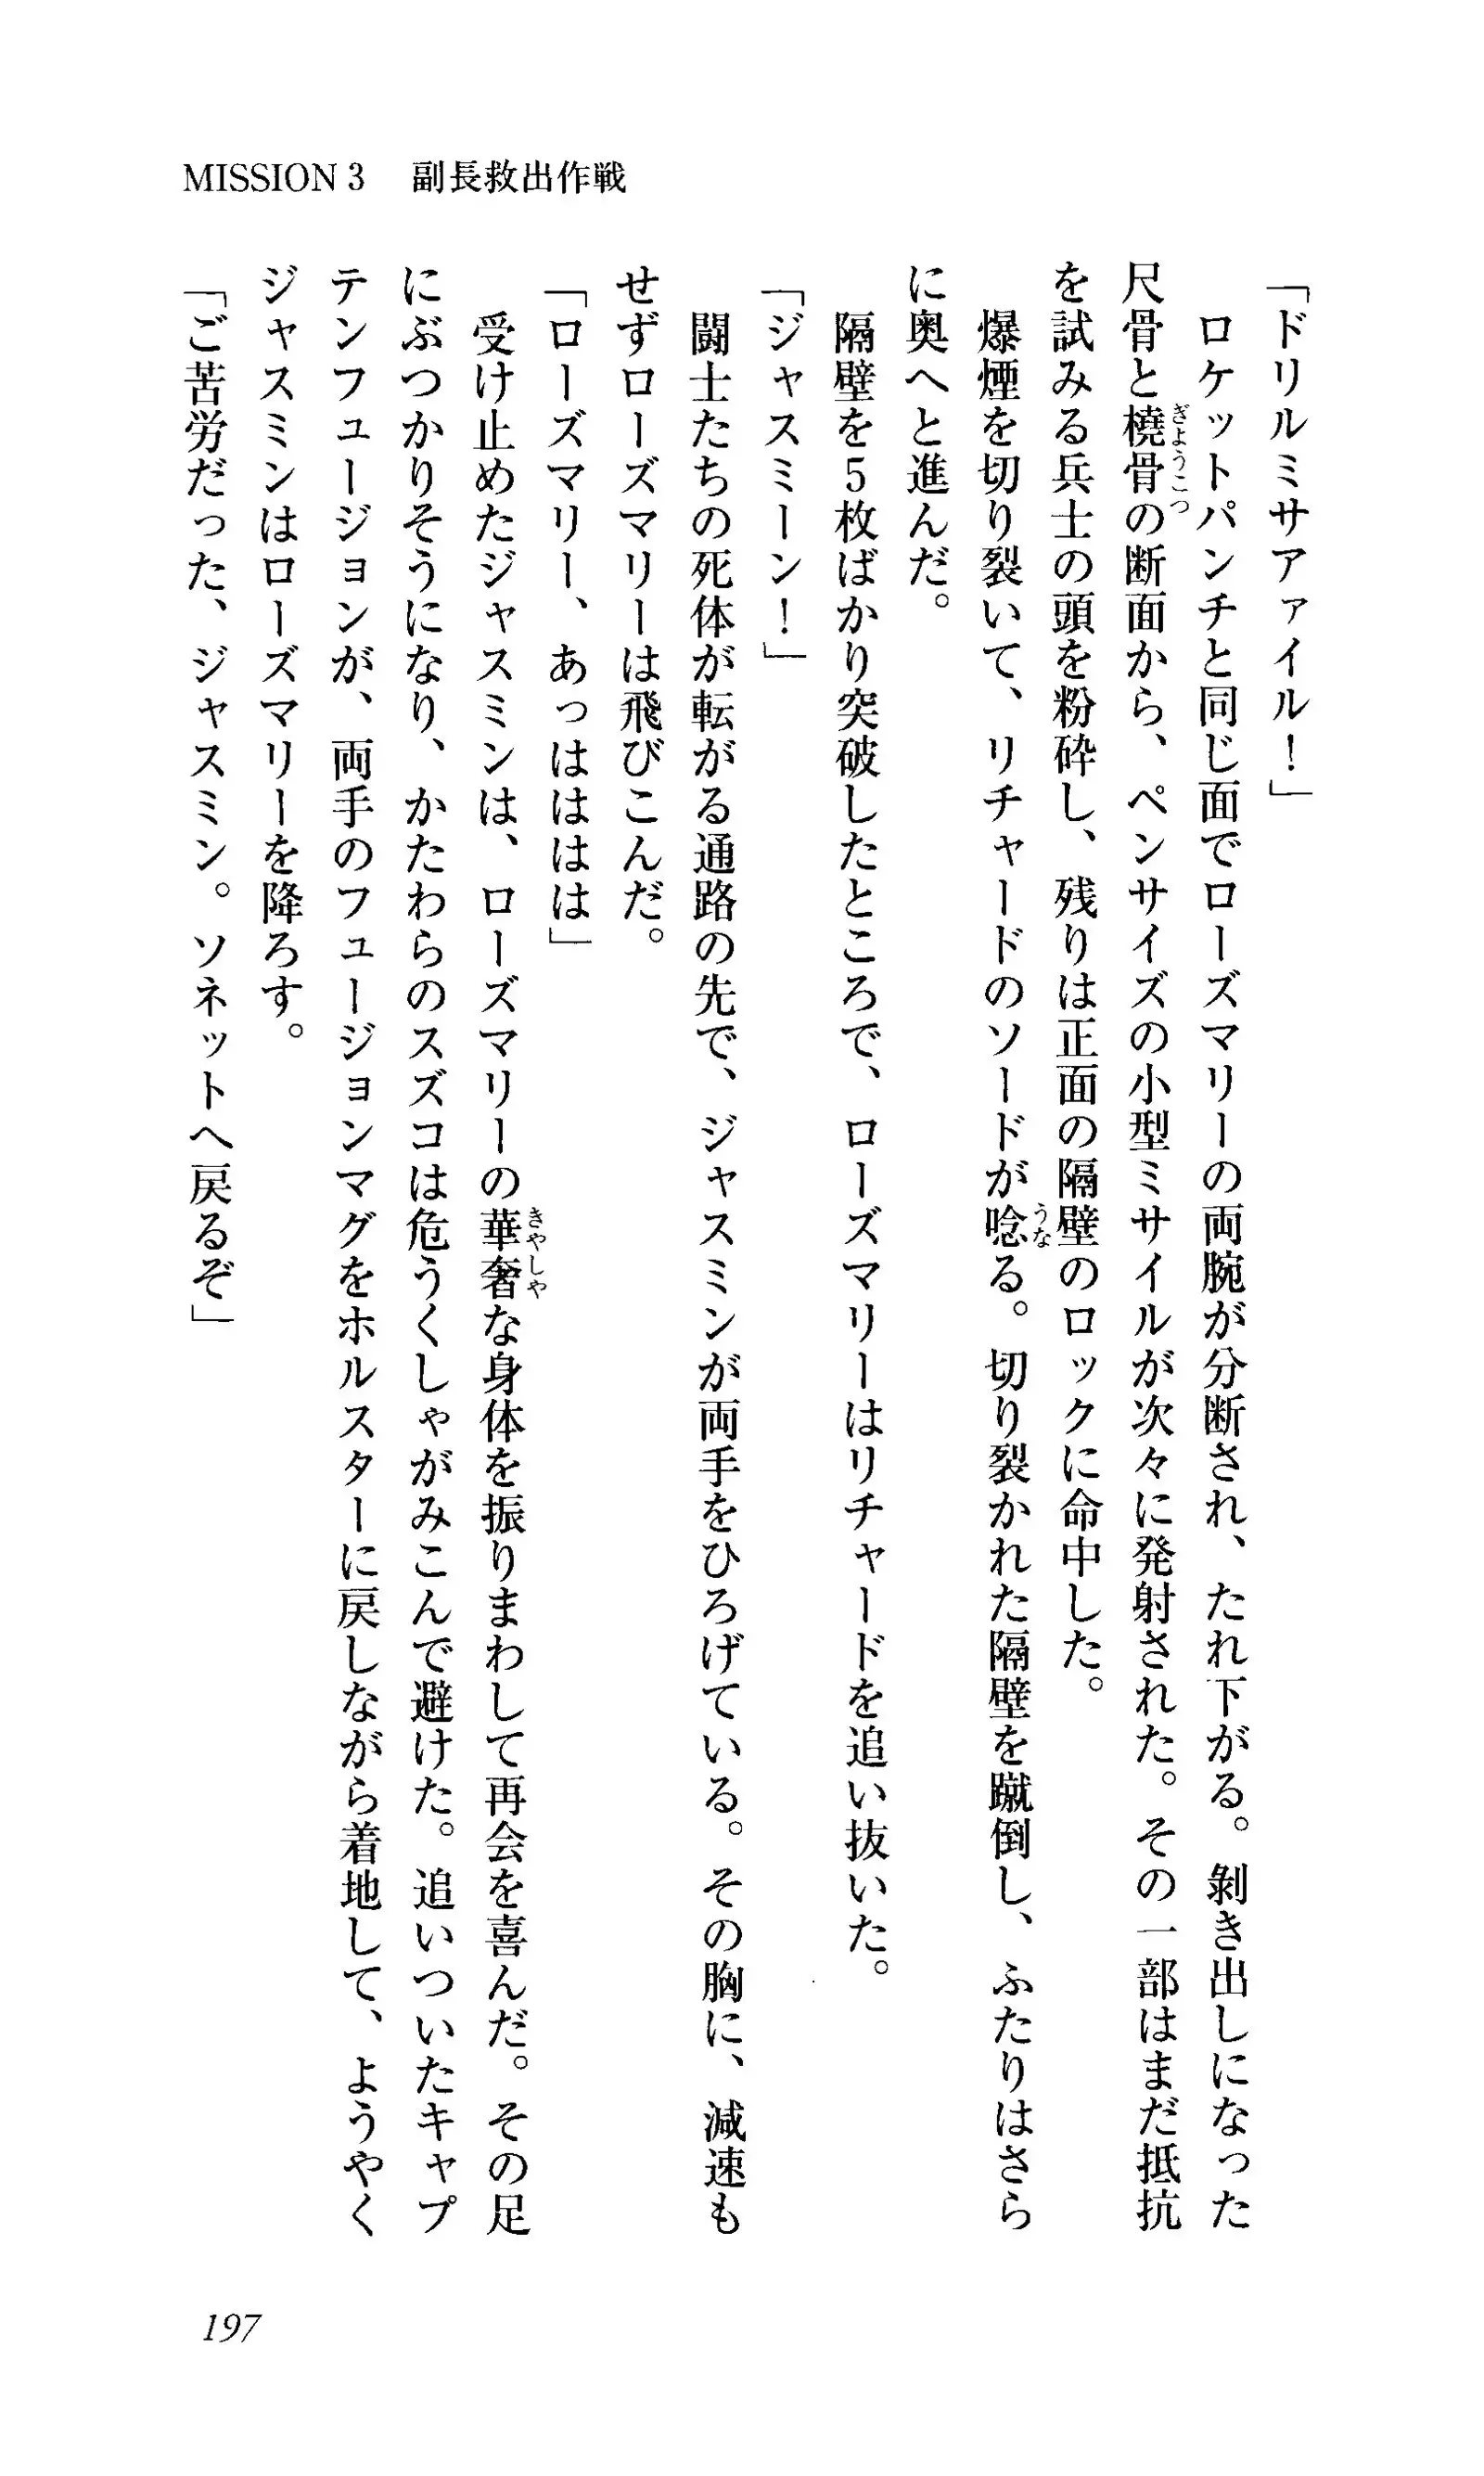 MISSION 3 副長救出作戦
「ドリルミサアァイル!」
ロケットパンチと同じ面でローズマリーの両腕が分断され、たれ下がる。剝き出しになった
尺骨と橈骨の断面から、ペンサイズの小型ミサイルが次々に発射された。その一部はまだ抵抗
を試みる兵士の頭を粉砕し、残りは正面の隔壁のロックに命中した。
爆煙を切り裂いて、リチャードのソードが唸る。切り裂かれた隔壁を蹴倒し、ふたりはさら
に奥へと進んだ。
隔壁を5枚ばかり突破したところで、ローズマリーはリチャードを追い抜いた。
「ジャスミーン!」
闘士たちの死体が転がる通路の先で、ジャスミンが両手をひろげている。その胸に、減速も
せずローズマリーは飛びこんだ。
「ローズマリー、あっはははは」
受け止めたジャスミンは、ローズマリーの華奢な身体を振りまわして再会を喜んだ。その足
にぶつかりそうになり、かたわらのスズコは危うくしゃがみこんで避けた。追いついたキャプ
テンフュージョンが、両手のフュージョンマグをホルスターに戻しながら着地して、ようやく
ジャスミンはローズマリーを降ろす。
「ご苦労だった、ジャスミン。ソネットへ戻るぞ」
197